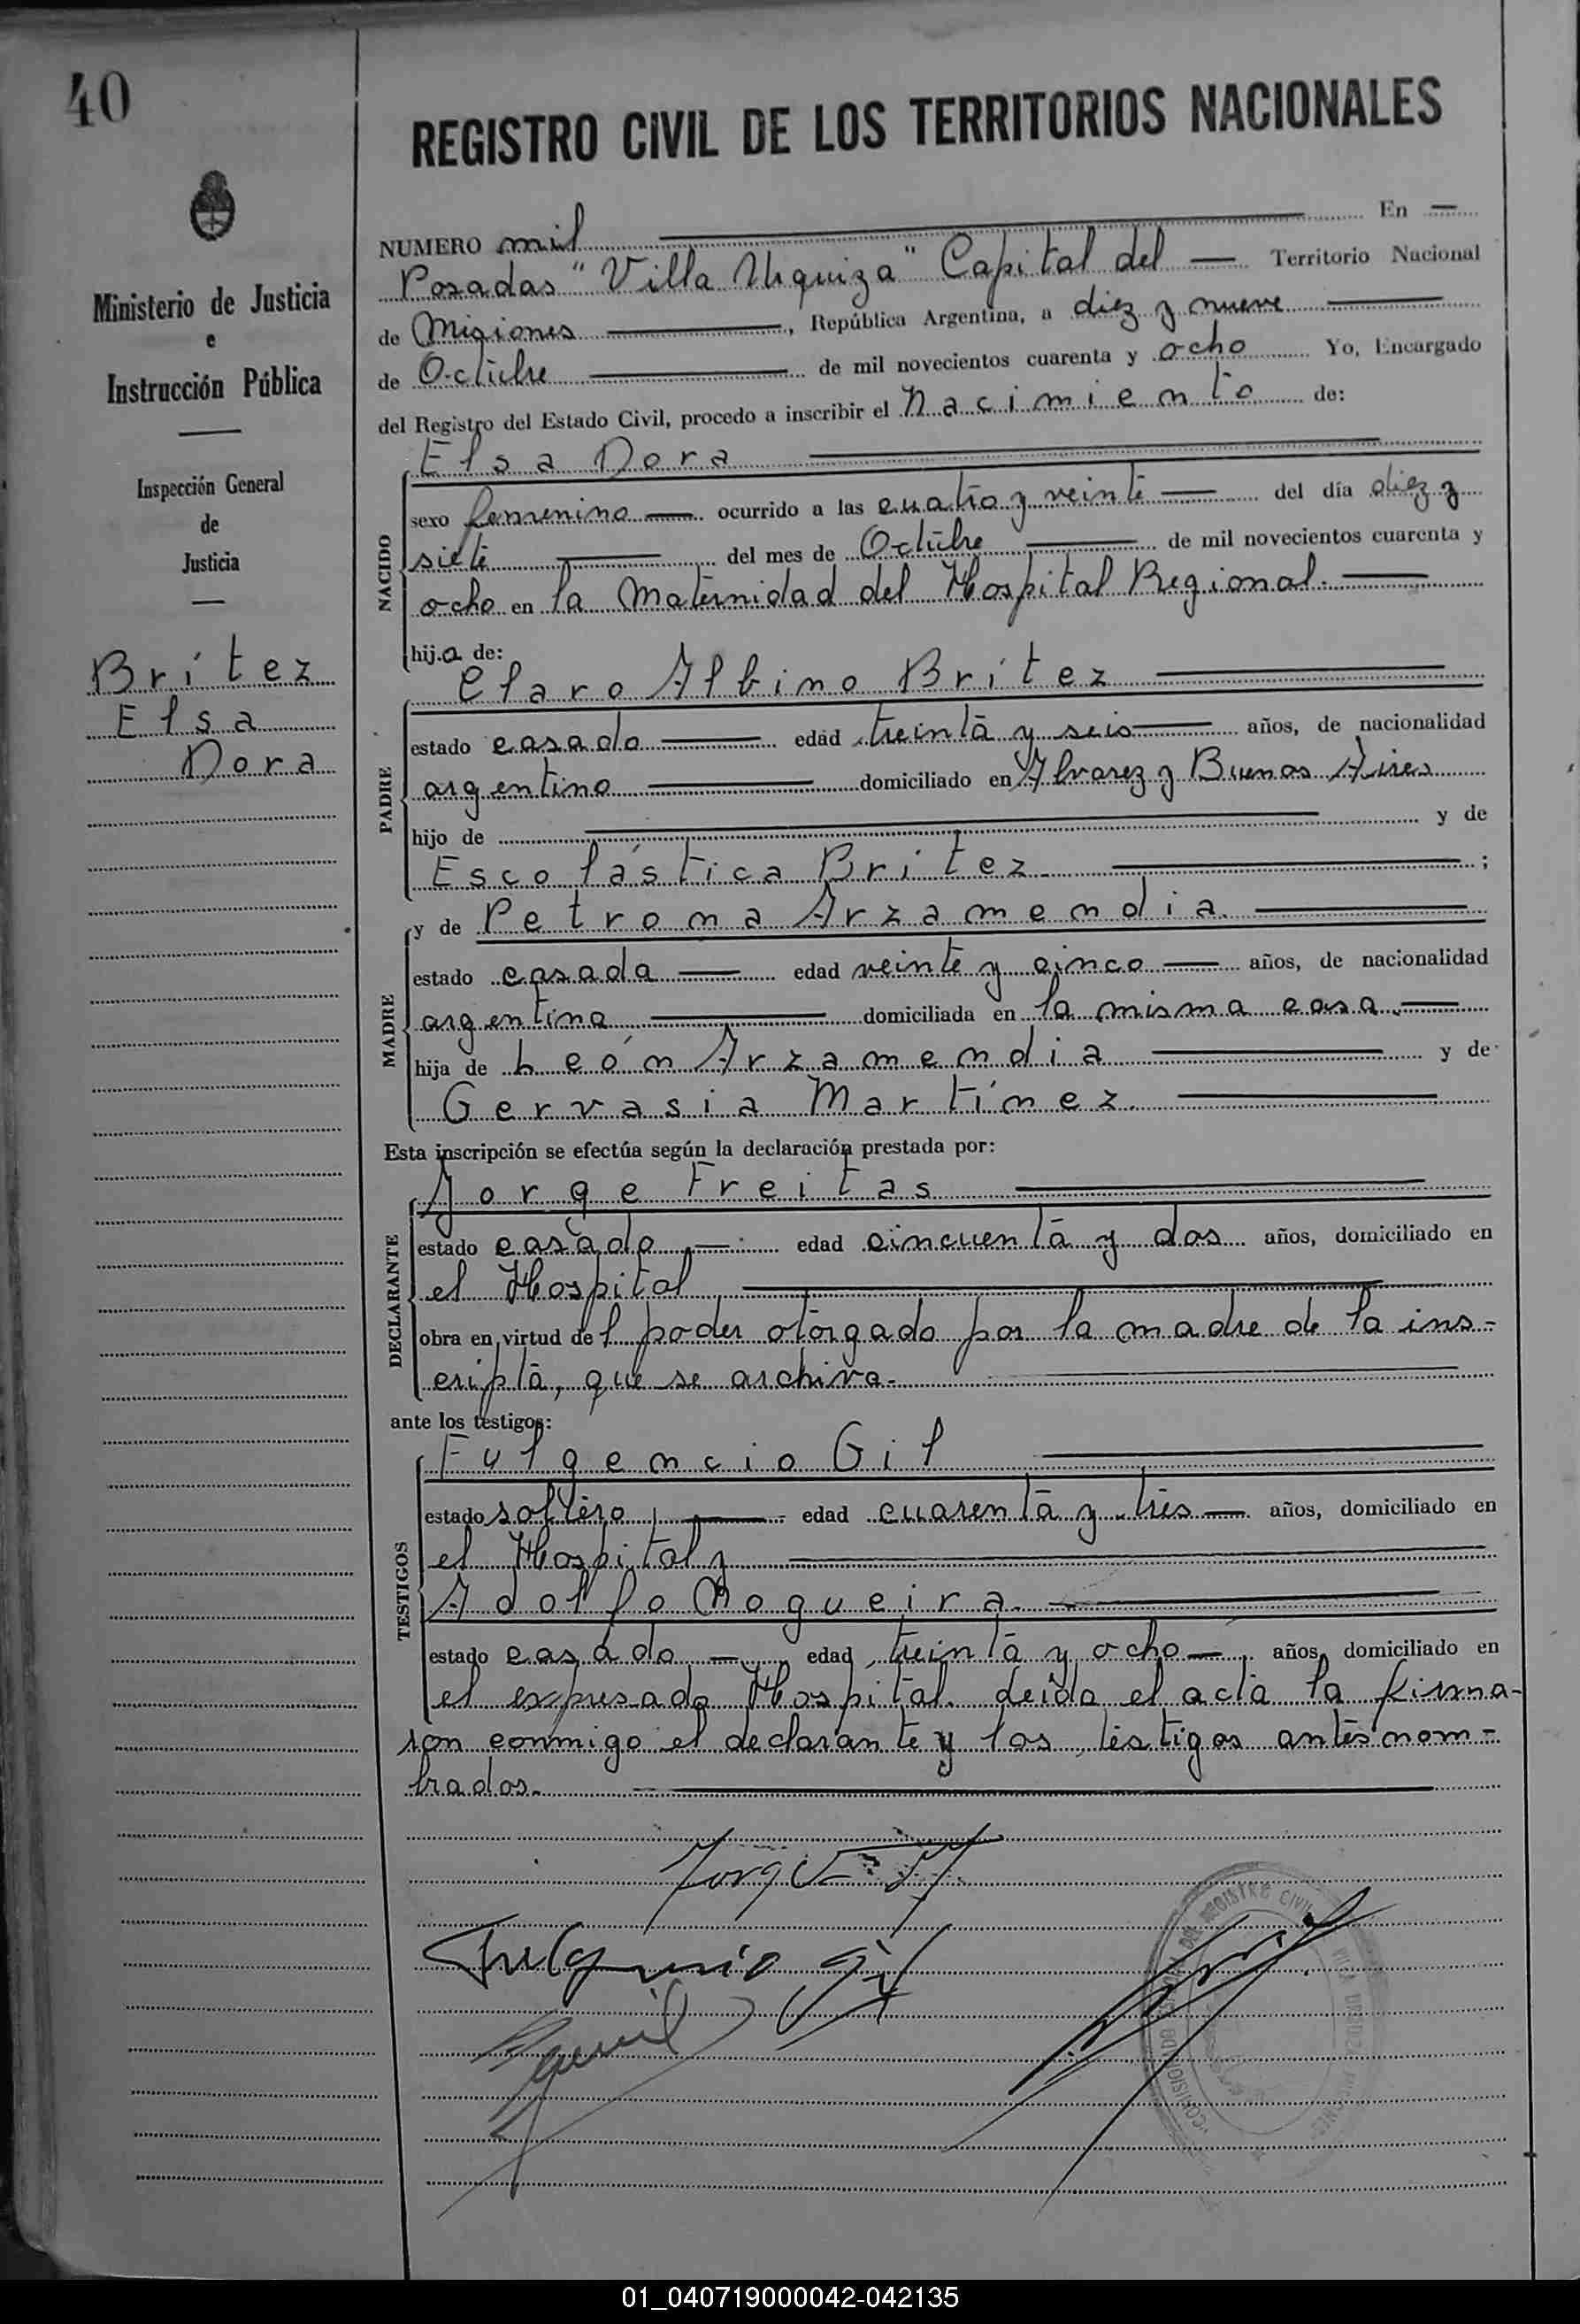 40
REGISTRO CIVIL DE LOS TERRITORIOS NACIONALES
Ministerio de Justicia
e
Instrucción Pública
Inspección General
de
Justicia
Brítez
Elsa
Dora
NUMERO mil En
Posadas "Villa Urquiza" Capital del Territorio Nacional
de Misiones, República Argentina, a diez y nueve
de Octubre de mil novecientos cuarenta y ocho Yo, Encargado
del Registro del Estado Civil, procedo a inscribir el Nacimiento de:
NACIDO
Elsa Dora
sexo femenino ocurrido a las cuatro y veinte del día diez y
siete del mes de Octubre de mil novecientos cuarenta y
ocho en la Maternidad del Hospital Regional.
hija de:
PADRE
Claro Albino Brítez
estado casado edad treinta y seis años, de nacionalidad
argentino domiciliado en Alvarez y Buenos Aires
hijo de y de
Escolástica Brítez ;
MADRE
y de Petrona Arzamendia.
estado casada edad veinte y cinco años, de nacionalidad
argentina domiciliada en la misma casa.
hija de León Arzamendia y de
Gervasia Martínez.
Esta inscripción se efectúa según la declaración prestada por:
DECLARANTE
Jorge Freitas
estado casado edad cincuenta y dos años, domiciliado en
el Hospital
obra en virtud del poder otorgado por la madre de la ins-
cripta, que se archiva.
ante los testigos:
TESTIGOS
Fulgencio Gil
estado soltero edad cuarenta y tres años, domiciliado en
el Hospital y
Adolfo Nogueira.
estado casado edad treinta y ocho años, domiciliado en
el expresado Hospital. Leída el acta la firma-
ron conmigo el declarante y los testigos antes nom-
brados.
Jorge
Fulgencio Gil
DEL REGISTRO CIVIL
01_040719000042-042135